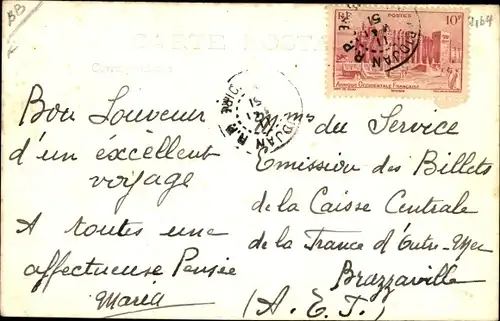 BB
2164
CARTE POSTALE
Correspondance
POSTES 10F
Afrique Occidentale Française
Bon Souvenir
d'un éxcéllent
voyage
A toutes une
affectueuse Pensée
Maria
Mms du Service
Emission des Billets
de la Caisse Centrale
de la France d'Outre-Mer
Brazzaville
(A.E.F.)